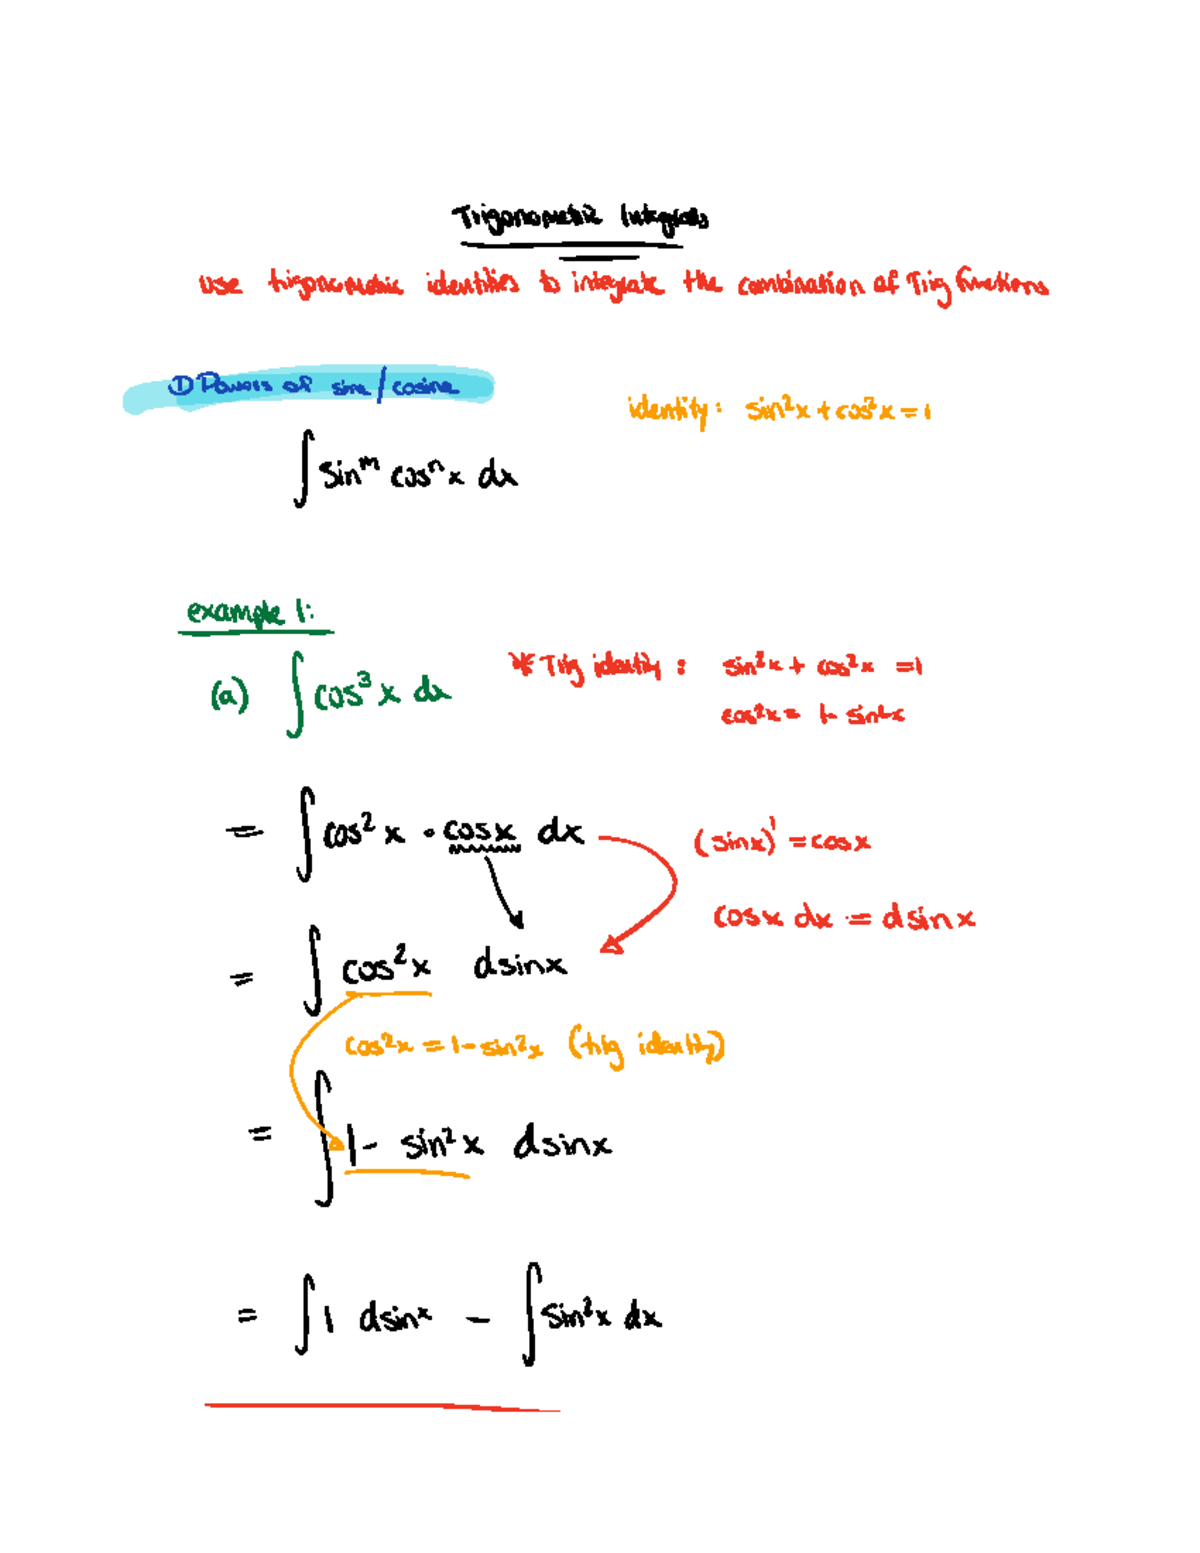 Trigonometric Integrals
use trigonometric identities to integrate the combination of Trig functions
① Powers of sine / cosine
identity: sin²x + cos²x = 1
∫ sinᵐ cosⁿx dx
example 1:
(a) ∫ cos³x dx
* Trig identity : sin²x + cos²x = 1
cos²x = 1 - sin²x
= ∫ cos²x · cosx dx
(sinx)' = cosx
cosx dx = dsinx
= ∫ cos²x dsinx
cos²x = 1 - sin²x (trig identity)
= ∫ 1 - sin²x dsinx
= ∫ 1 dsinx - ∫ sin²x dx